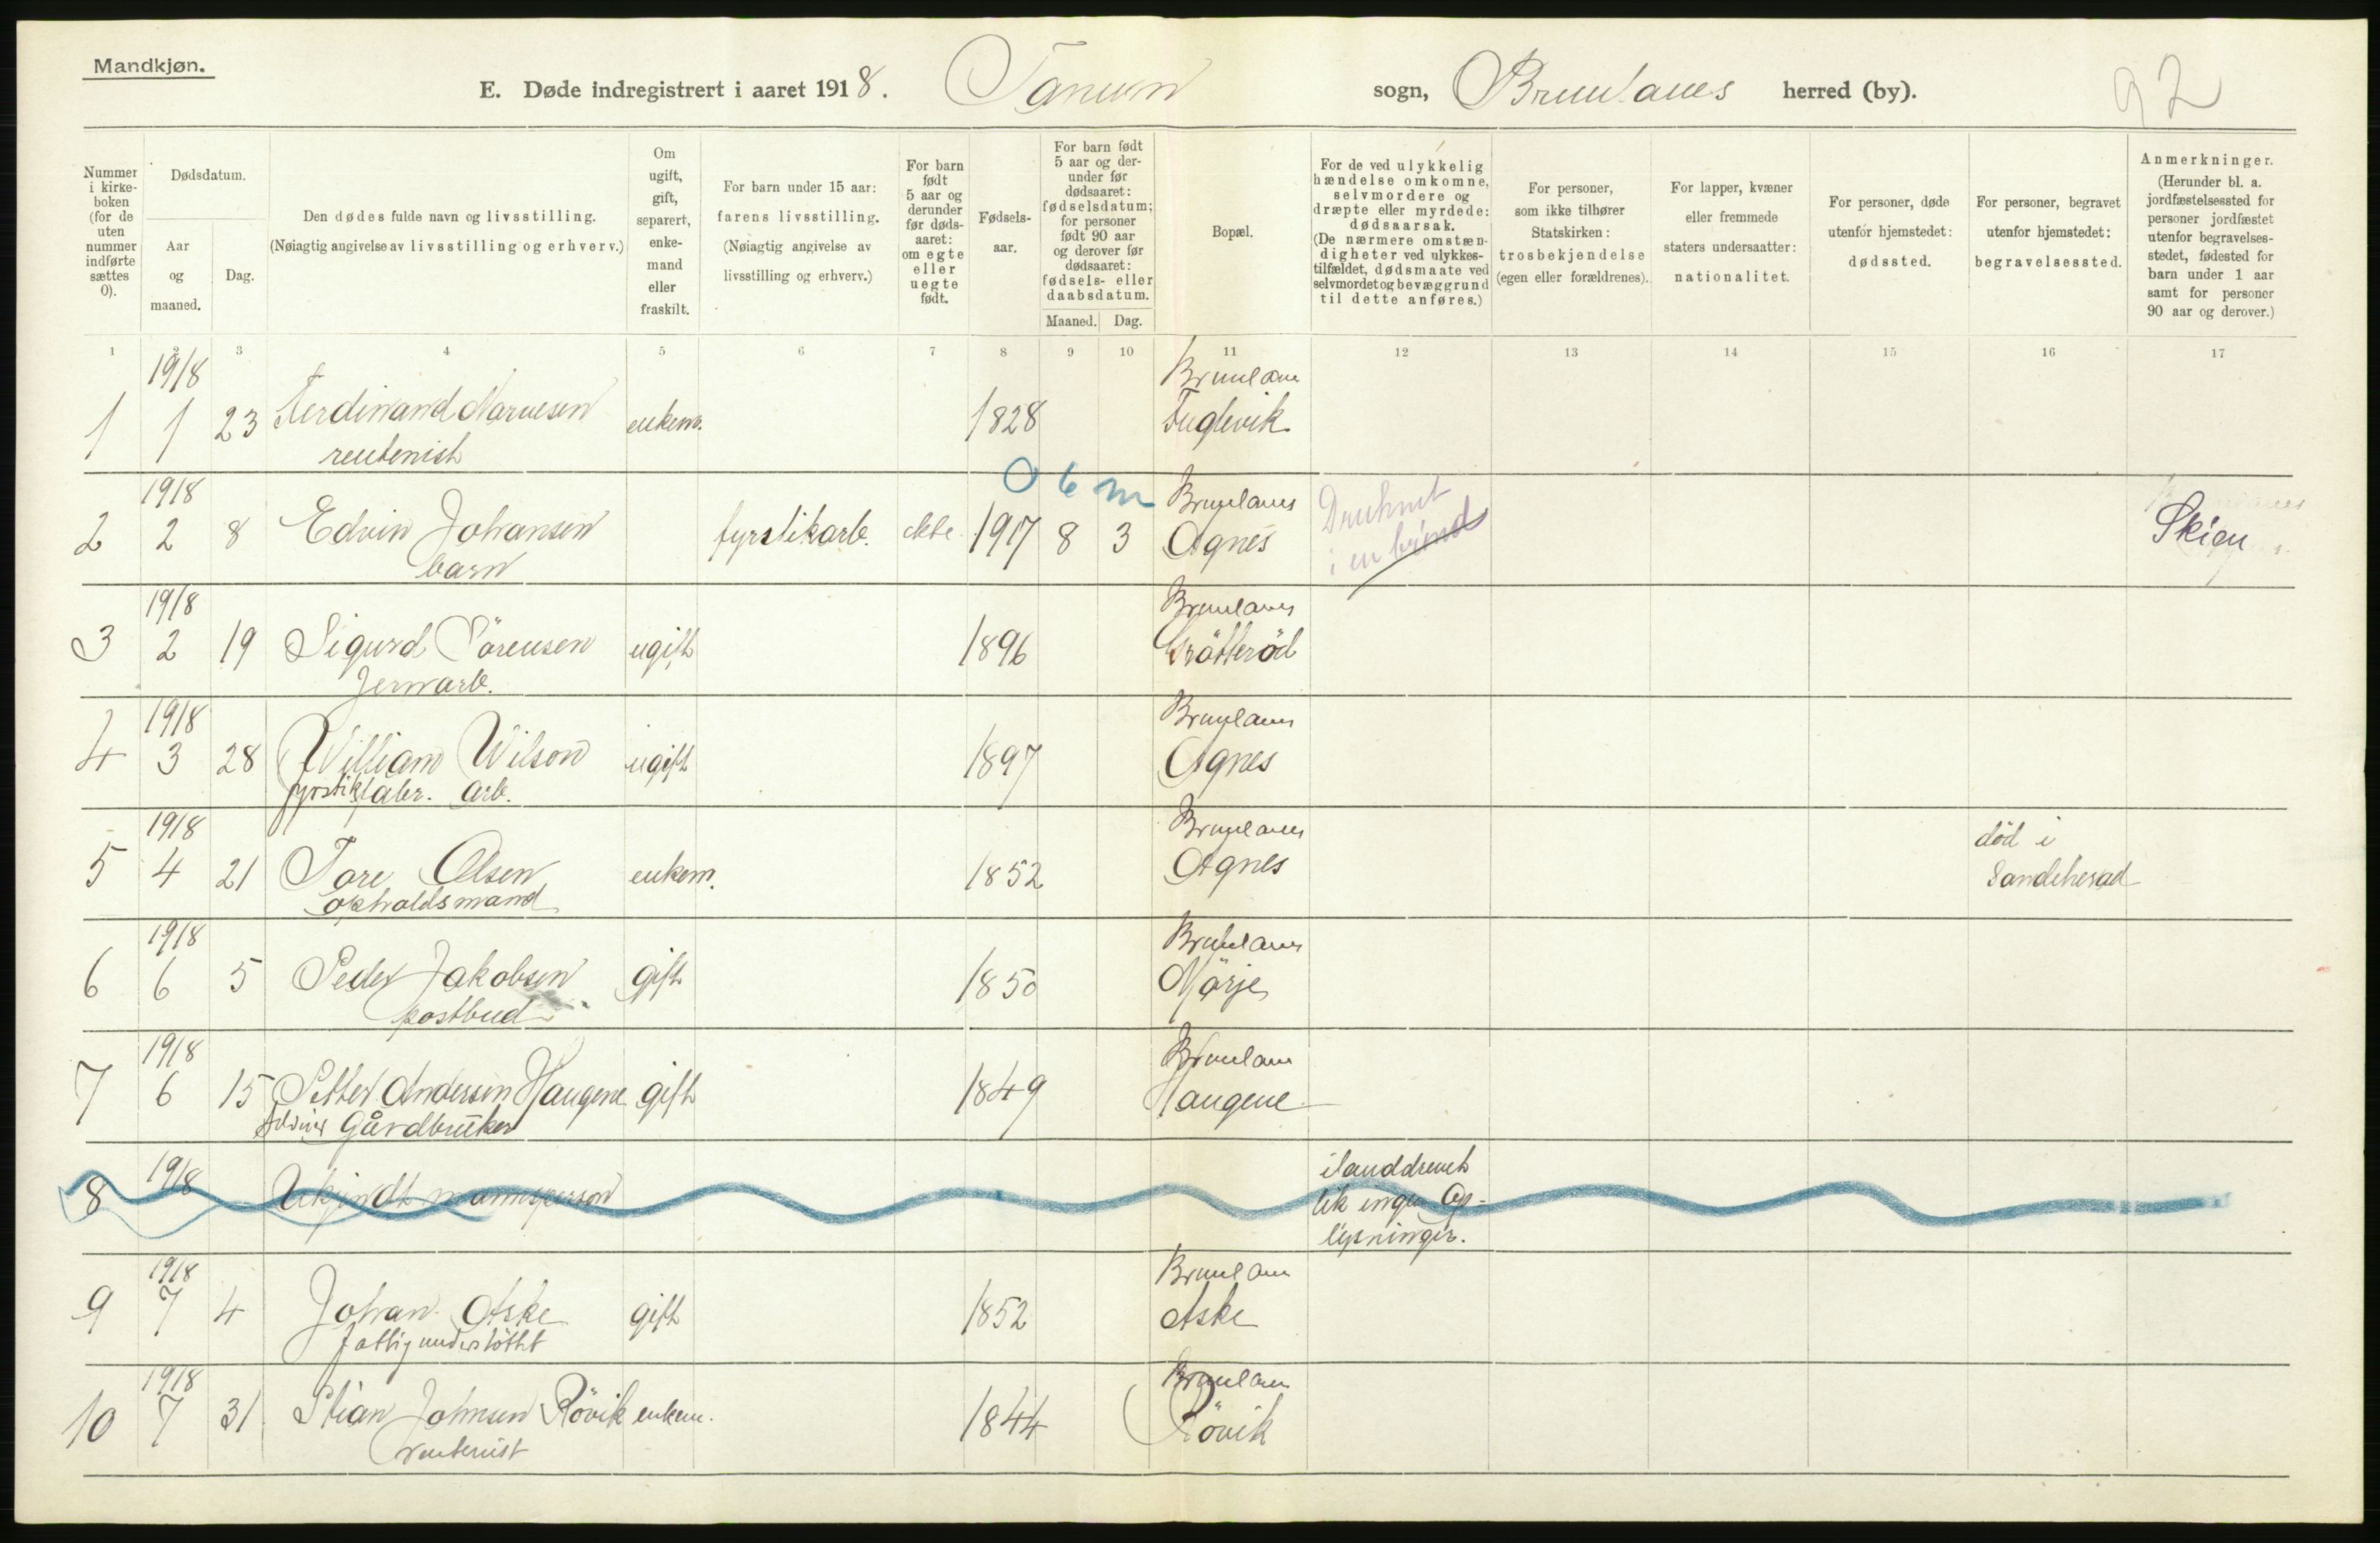 Mandkjøn.
E. Døde indregistrert i aaret 1918. Tanum sogn, Brunlanes herred (by).
92
Nummer i kirke- boken (for de uten nummer indførte sættes 0).
Dødsdatum.
Aar og maaned.
Dag.
Den dødes fulde navn og livsstilling.
(Nøiagtig angivelse av livsstilling og erhverv.)
Om ugift, gift, separert, enke- mand eller fraskilt.
For barn under 15 aar: farens livsstilling.
(Nøiagtig angivelse av livsstilling og erhverv.)
For barn født 5 aar og derunder før døds- aaret: om egte eller uegte født.
Fødsels- aar.
For barn født 5 aar og der- under før dødsaaret: fødselsdatum; for personer født 90 aar og derover før dødsaaret: fødsels- eller daabsdatum.
Maaned. Dag.
Bopæl.
For de ved ulykkelig hændelse omkomne, selvmordere og dræpte eller myrdede: dødsaarsak.
(De nærmere omstæn- digheter ved ulykkes- tilfældet, dødsmaate ved selvmordet og bevæggrund til dette anføres.)
For personer, som ikke tilhører Statskirken: trosbekjendelse (egen eller forældrenes).
For lapper, kvæner eller fremmede staters undersaatter: nationalitet.
For personer, døde utenfor hjemstedet: dødssted.
For personer, begravet utenfor hjemstedet: begravelsessted.
Anmerkninger.
(Herunder bl. a. jordfæstelsessted for personer jordfæstet utenfor begravelses- stedet, fødested for barn under 1 aar samt for personer 90 aar og derover.)
1 2 3 4 5 6 7 8 9 10 11 12 13 14 15 16 17
1918 Brunlanes
1 1 23 Ferdinand enkem. 1828 Fuglevik
rentenist
0 6 m
1918 Brunlanes Druknet
2 2 8 Edvin Johansen fyrstikarb. ekte 1917 8 3 Agnes i en brønd Skien
barn
1918 Brunlanes
3 2 19 Sigurd Sörensen ugift 1896 Grötteröd
Jernarb.
1918 Brunlanes
4 3 28 William Wilson ugift 1897 Agnes
fyrstikfabr. arb.
1918 Brunlanes död i
5 4 21 Tore Olsen enkem. 1852 Agnes Sandeherad
opholdsmand
1918 Brunlanes
6 6 5 Peder Jakobsen gift 1850 Mörje
postbud
1918 Brunlanes
7 6 15 Petter Andersen Haugene gift 1849 Haugene
Gårdbruker
1918 ilanddrevet
8 Ukjendt mannsperson lik ingen Op-
lysninger.
1918 Brunlanes
9 7 4 Johan Aske gift 1852 Aske
fattigunderstöttet
1918 Brunlanes
10 7 31 Stian Johnsen Rövik enkem. 1844 Rövik
rentenist